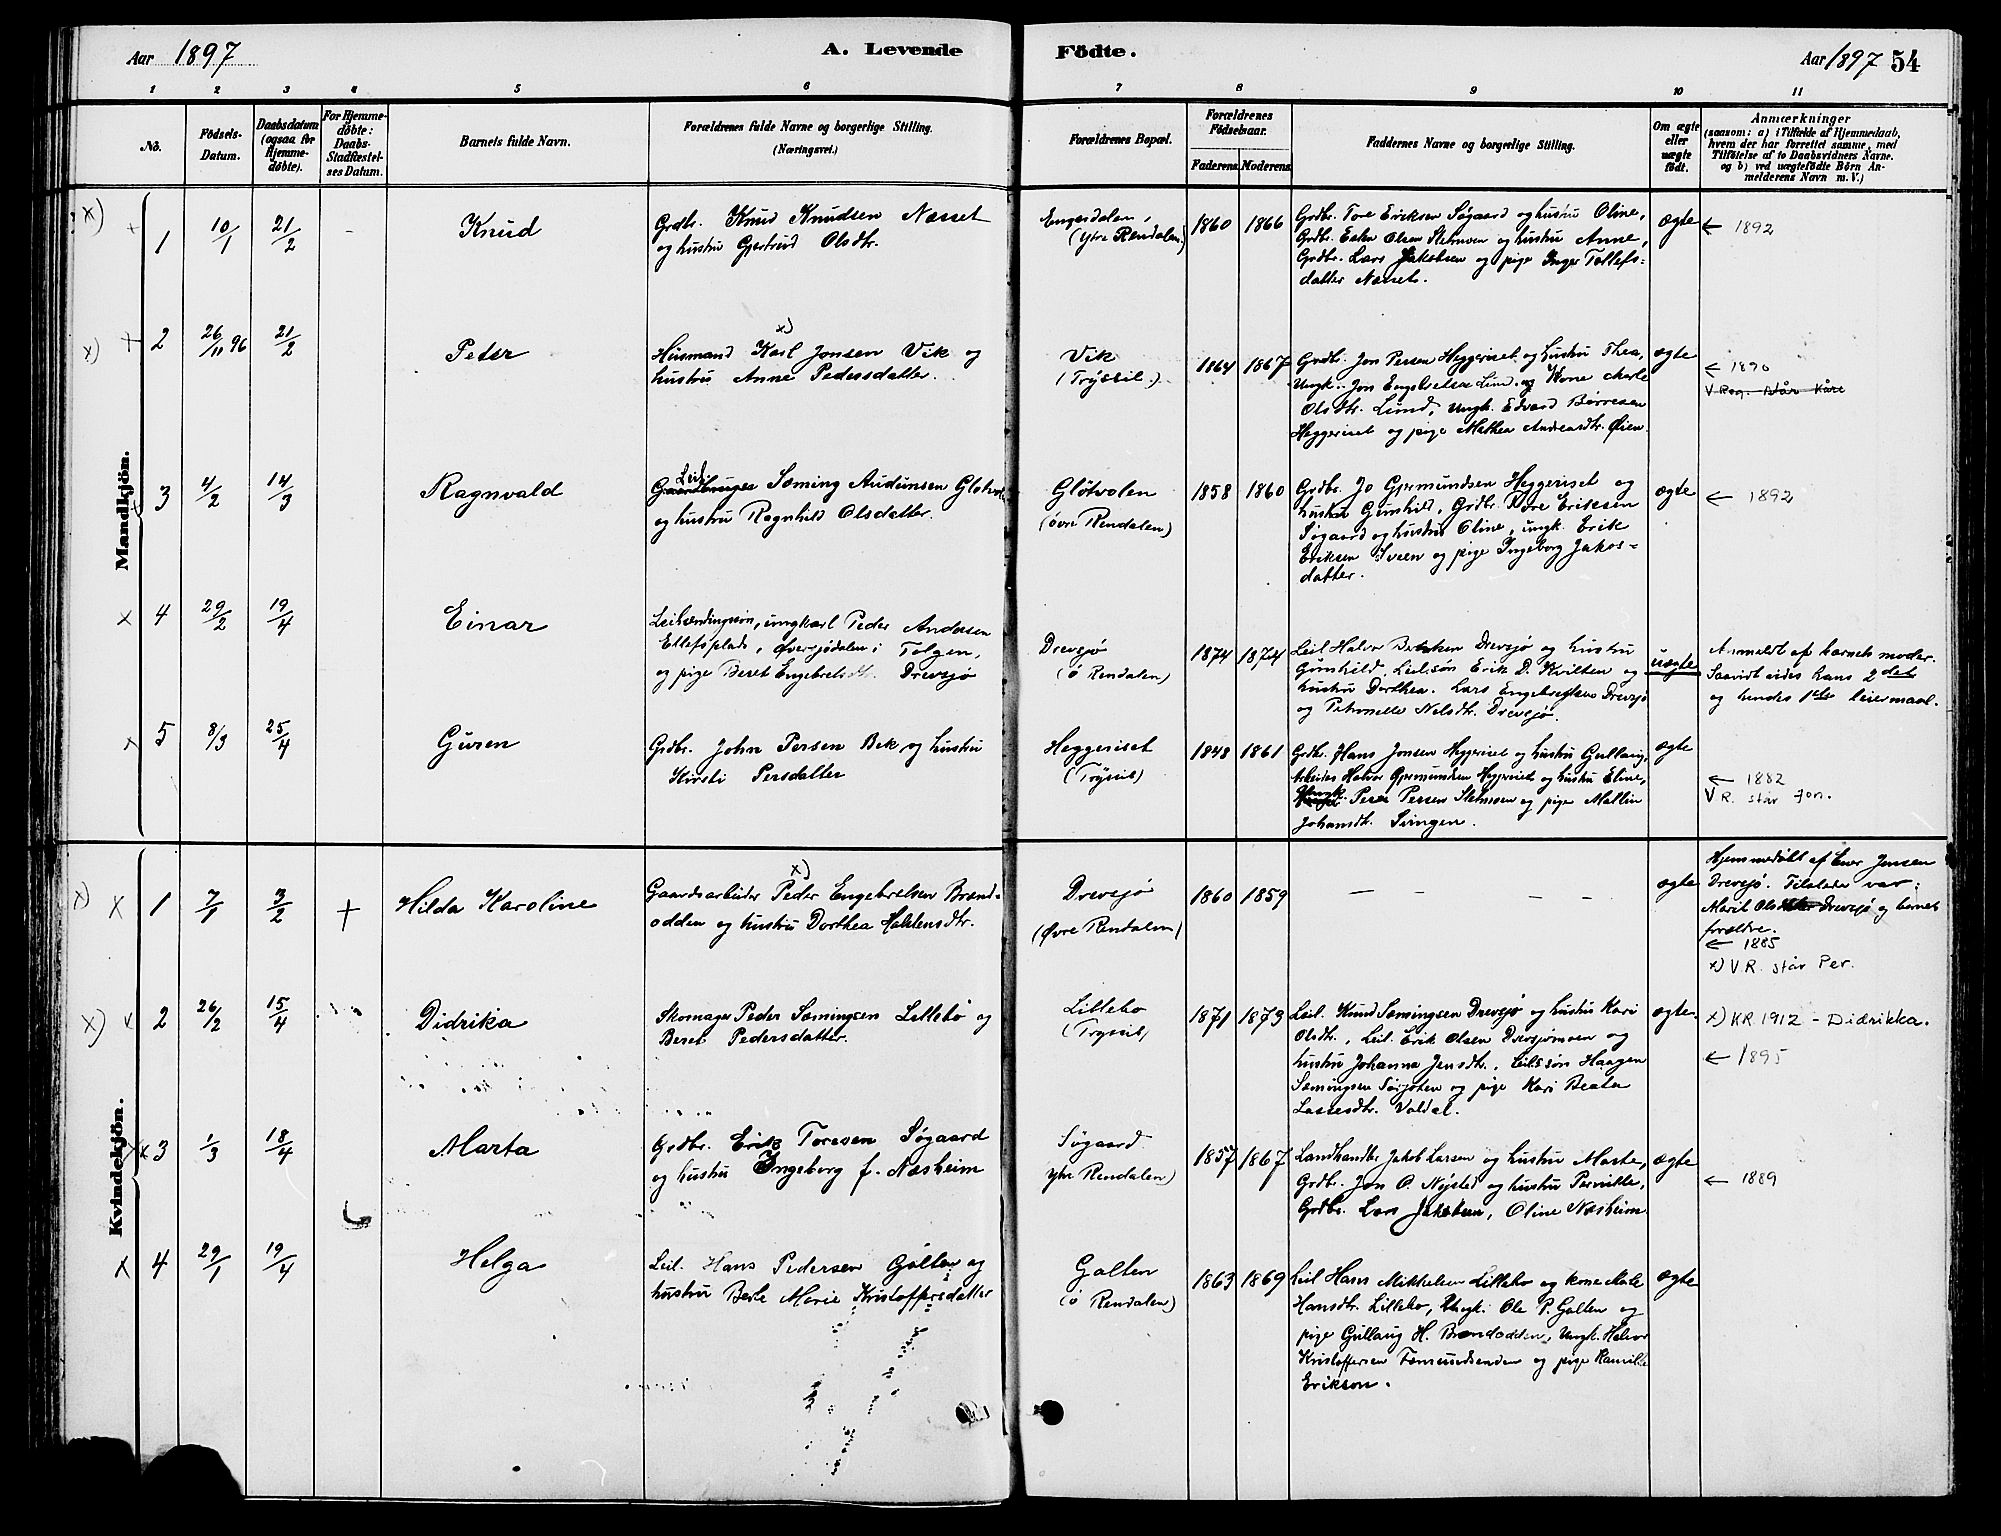 Aar 1897
A. Levende
Födte.
Aar 1897 54
1 2 3 4 5 6 7 8 9 10 11
No.
Födsels-
Datum.
Daabsdatum
(ogsaa for
Hjemme-
döbte).
For Hjemme-
döbte:
Daabs-
Stadfæstel-
ses Datum.
Barnets fulde Navn.
Forældrenes fulde Navne og borgerlige Stilling.
(Næringsvei.)
Forældrenes Bopæl.
Forældrenes
Födselsaar.
Faderens. Moderens.
Faddernes Navne og borgerlige Stilling.
Om ægte
eller
uægte
födt.
Anmærkninger
(saasom: a) i Tilfælde af Hjemmedaab,
hvem der har forrettet samme, med
Tilföielse af to Daabsvidners Navne.
og b) ved uægtefödte Börn An-
melderens Navn m. V.)
Mandkjön.
x) + 1 10/1 21/2 - Knud
Grdbr. Knud Knudsen Næsset
og hustru Gjertrud Olsdtr.
Engerdalen,
(Ytre Rendalen)
1860 1866
Grdbr. Tore Eriksen Søgaard og hustru Oline,
Grdbr. Esten Olsen Stemoen og hustru Anne,
Grdbr. Lars Jakobsen og pige Inger Tollefs-
datter Næsset.
ægte
← 1892
x) + 2 26/11 96 21/2 Peder
x)
Husmand Karl Jonsen Vik og
hustru Anne Pedersdatter.
Vik
(Trysil.)
1864 1867
Grdbr. Jon Persen Heggeriset og hustru Thea,
Ungk. Jon Engebretsen Lund og Kone Marte
Olsdtr. Lund, Ungk. Edvard Børresen
Heggeriset og pige Mathea Andreasdtr. Øien.
ægte
← 1890
V Reg. står Kåre
3 4/2 14/3 Ragnvald
Leil.
Gaardbruger Sæming Audunsen Gløtvol
og hustru Ragnhild Olsdatter.
Gløtvolen
(øvre Rendalen)
1858 1860
Grdbr. Jo Gjermundsen Heggeriset og
hustru Gunhild, Grdbr. Tore Eriksen
Søgaard og hustru Oline, ungk. Erik
Eriksen Sveen og pige Ingeborg Jakos-
datter.
ægte
← 1892
x 4 29/2 19/4 Einar
Leilændingsøn, ungkarl Peder Andersen
Ellefsplads, Øversjødalen i Tolgen,
og pige Beret Engebretsdt. Drevsjø
Drevsjø
(ø Rendalen)
1874 1874
Leil Halvor Drevsjø og hustru
Gunhild, Leil.søn Erik D. Kvilten og
hustru Dorthea. Lars Engebregtsen Drevsjø
og Petronelle Nilsdtr. Drevsjø.
uægte
Anmeldt af barnets moder.
Saavidt vides hans 2det
og hendes 1ste leiermaal.
x 5 8/3 25/4 Guren
Grdbr. John Persen Bek og hustru
Kirsti Persdatter
Heggeriset
(Trysil)
1848 1861
Grdbr. Hans Jonsen Heggeriset og hustru Gullaug,
Arbeider Halvor Gjermundsen Heggeriset og hustru Eline,
Ungk. Peder Persen Stemoen og pige Mallin
Johansdt. Svingen.
ægte
← 1882
V R. står Jon.
Kvindekjön.
x) x 1 7/1 3/2 + Hilda Karoline
x)
Gaardsarbeider Peder Engebretsen Brænd-
odden og hustru Dorthea Haldensdtr.
Drevsjø
(Øvre Rendalen)
1860 1859
— — — —
ægte
Hjemmedøbt af Jensen
Drevsjø. Tilstede var:
Marit Drevsjø og barnets
forældre.
← 1885
x) V.R. står Per.
x) x 2 26/2 15/4 Didrika
Skomager Peder Sæmingsen Lillebo og
Beret Pedersdatter.
Lillebo
(Trysil)
1871 1873
Leil. Knud Sæmingsen Drevsjø og hustru Kari
Olsdtr., Leil. Erik Olsen Drevsjømoen og
hustru Johanna Jensdtr., Leilssøn Haagen
Sæmingsen Sørjoten og pige Kari Beata
Lassesdtr. Valdal.
ægte.
x) KR 1912 - Didrikka.
← 1895
x 3 1/3 18/4 Marta
Grdbr. Erik Toresen Søgaard
og hustru Ingeborg f. Næsheim
Søgaard
Ytre Rendalen)
1857 1867
Landhandler Jakob Larsen og hustru Marte,
Grdbr. Jon O. Nysted og hustru Pernille,
Grdbr. Lars Jakobsen, Oline Næsheim
ægte
← 1889
x 4 29/1 19/4 Helga
Leil. Hans Pedersen Galten og
hustru Berte Marie Kristoffersdatter
Galten
(ø Rendalen)
1863 1869
Leil Hans Mikkelsen Lillebo og kone Mate
Hansdtr. Lillebo, Ungk. Ole P. Galten og
pige Gullaug H. Brændodden, Ungk. Halvor
Kristoffersen Femundsenden og pige Kamille
Erikson.
ægte